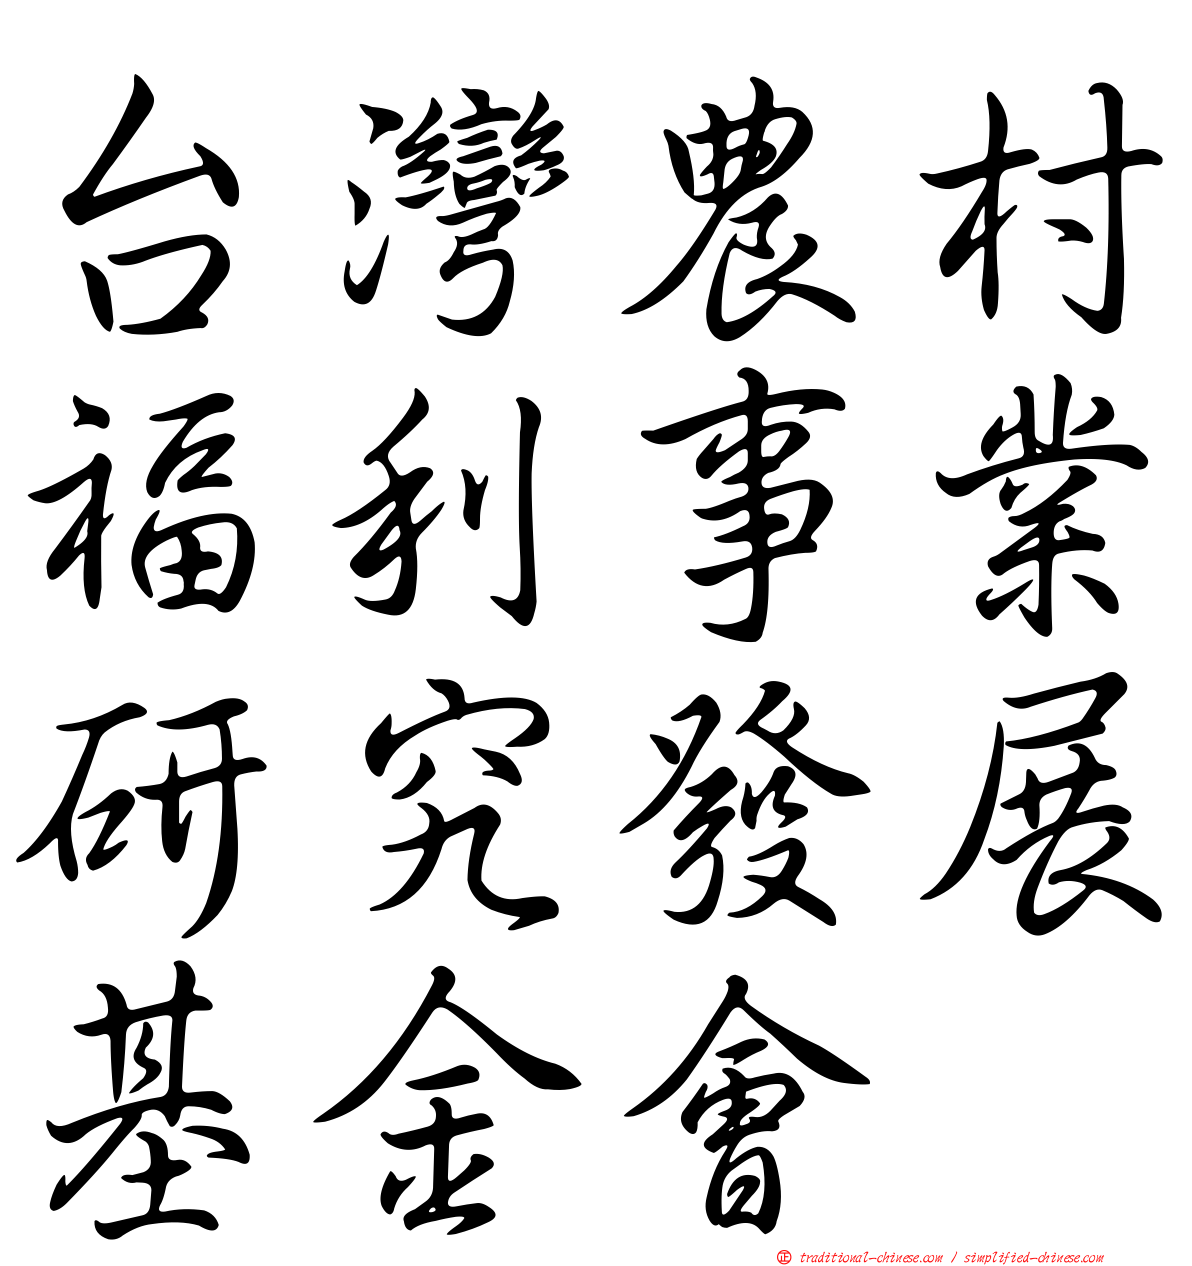 台灣農村
福利事業
研究發展
基金會
正 traditional-chinese.com / simplified-chinese.com